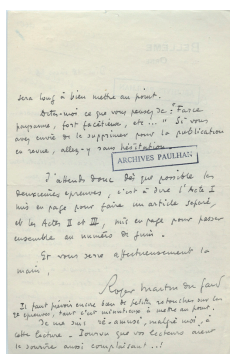 sera long à bien mettre au point.
Dites-moi ce que vous pensez de : "Farce
paysanne, fort facétieuse, etc..." Si vous
avez envie de le supprimer pour la publication
en revue, allez-y sans hésitation.
ARCHIVES PAULHAN
J'attends donc dès que possible les
deuxièmes épreuves, c'est à dire l'Acte I
mis en page pour faire un article séparé,
et les Actes II et III, mis en page pour passer
ensemble au numéro de juin.
Et vous serre affectueusement la
main,
Roger Martin du Gard
Il faut prévoir encore bien de petites retouches sur les
épreuves, tant c'est minutieux à mettre au point.
Je me suis ré-amusé, malgré moi, à
cette lecture. Pourvu que vos lecteurs aient
le sourire aussi complaisant !..